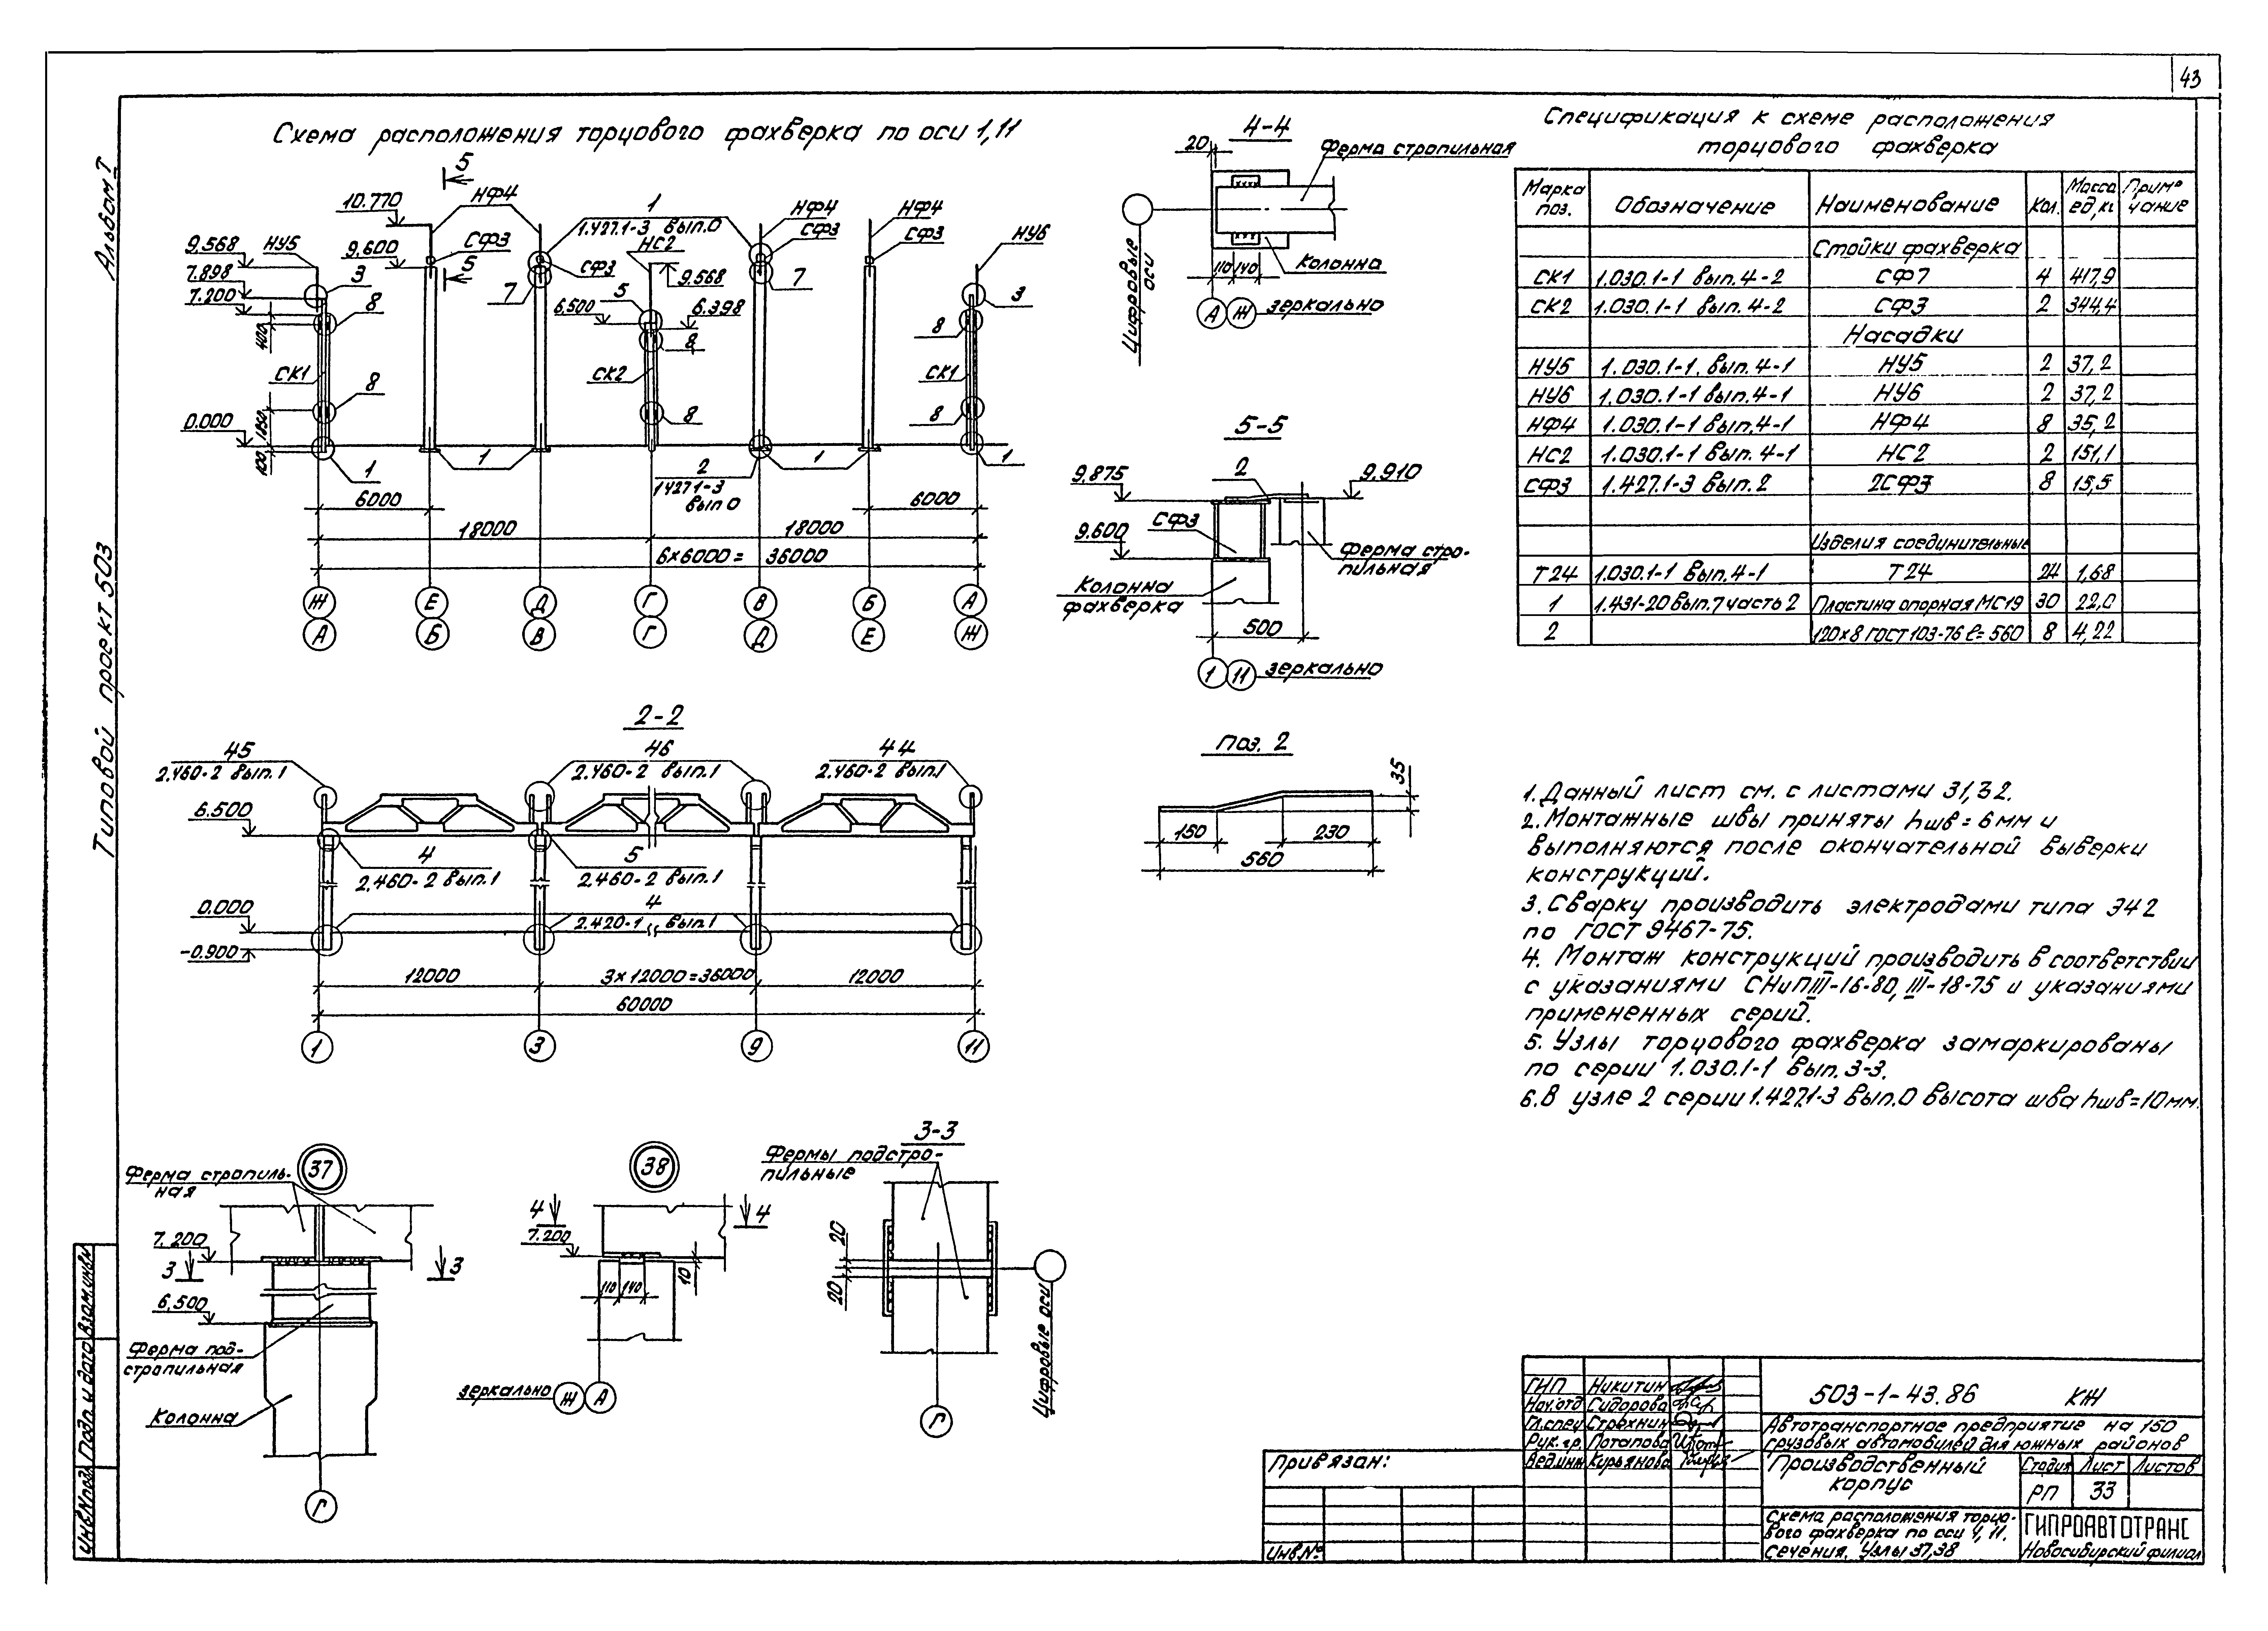 43
Альбом I
Типовой проект 503
Схема расположения торцового фахверка по оси 1,11
5
5
10.770
НФ4
9.568
НУ5
9.600
СФ3
7.898
3
7.200
8
400
СК1
8
0.000
1050
100
1
1
1
1.427.1-3 вып.0
НС2
СФ3
7
5
6.500
9.568
6.398
8
СК2
8
2
1.427.1-3
вып 0
НФ4
СФ3
7
1
НФ4
СФ3
НУ6
3
8
СК1
8
1
6000
6000
18000
18000
6×6000 = 36000
Ж Е Д Г В Б А
А Б В Г Д Е Ж
4-4
20
Ферма стропильная
Цифровые
оси
110 140
Колонна
А Ж зеркально
5-5
9.875
2
9.910
СФ3
9.600
Ферма стро-
пильная
Колонна
фахверка
500
1 11 зеркально
Поз. 2
35
150
230
560
Спецификация к схеме расположения
торцового фахверка
Марка поз. Обозначение Наименование Кол. Масса ед, кг Приме чание
Стойки фахверка
СК1 1.030.1-1 вып.4-2 СФ7 4 417,9
СК2 1.030.1-1 вып.4-2 СФ3 2 344,4
Насадки
НУ5 1.030.1-1. вып.4-1 НУ5 2 37,2
НУ6 1.030.1-1 вып.4-1 НУ6 2 37,2
НФ4 1.030.1-1 вып.4-1 НФ4 8 35,2
НС2 1.030.1-1 вып.4-1 НС2 2 151,1
СФ3 1.427.1-3 вып.2 2СФ3 8 15,5
Изделия соединительные
Т24 1.030.1-1 вып.4-1 Т24 24 1,68
1 1.431-20 вып.7 часть 2 Пластина опорная МС19 30 22,0
2 120×8 ГОСТ 103-76 ℓ=560 8 4,22
2-2
45
2.460-2 вып.1
46
2.460-2 вып.1
44
2.460-2 вып.1
6.500
4
2.460-2 вып.1
5
2.460-2 вып.1
0.000
4
2.420-1 вып.1
-0.900
12000
3×12000=36000
12000
60000
1 3 9 11
1. Данный лист см. с листами 31,32.
2. Монтажные швы приняты hшв = 6 мм и
выполняются после окончательной выверки
конструкций.
3. Сварку производить электродами типа Э42
по ГОСТ 9467-75.
4. Монтаж конструкций производить в соответствии
с указаниями СНиП III-16-80, III-18-75 и указаниями
примененных серий.
5. Узлы торцового фахверка замаркированы
по серии 1.030.1-1 вып. 3-3.
6. В узле 2 серии 1.427.1-3 вып.0 высота шва hшв=10мм.
37
Ферма стропиль-
ная
7.200
3
3
6,500
Ферма под-
стропильная
Колонна
Г
38
4
4
7.200
110 140
10
зеркально Ж А
3-3
Фермы подстро-
пильные
20
20
Цифровые оси
Г
Инв.N подл. Подп. и дата Взам.инв.N
Привязан:
Инв.№
ГИП Никитин
Нач.отд Сидорова
Гл.спец Страхнин
Рук.гр. Потапова
Вед.инж Курьянова
503-1-43.86 КЖ
Автотранспортное предприятие на 150
грузовых автомобилей для южных районов
Производственный
корпус
Стадия Лист Листов
РП 33
Схема расположения торцо-
вого фахверка по оси 1, 11.
Сечения. Узлы 37,38
ГИПРОАВТОТРАНС
Новосибирский филиал